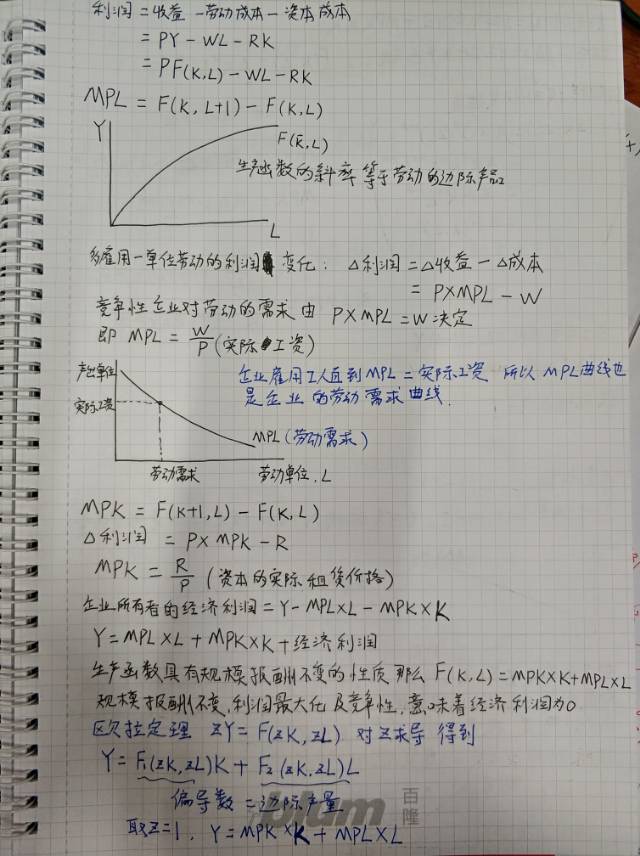 利润 = 收益 - 劳动成本 - 资本成本
= PY - WL - RK
= PF(K,L) - WL - RK
MPL = F(K, L+1) - F(K,L)
Y
F(K̄,L)
生产函数的斜率等于劳动的边际产品
L
多雇用一单位劳动的利润变化: △利润 = △收益 - △成本
= P×MPL - W
竞争性企业对劳动的需求由 P×MPL = W 决定
即 MPL = W/P (实际工资)
产出单位
企业雇用工人直到MPL = 实际工资 所以 MPL曲线也
实际工资
是企业的劳动需求曲线.
MPL (劳动需求)
劳动需求 劳动单位, L
MPK = F(K+1,L) - F(K,L)
△利润 = P×MPK - R
MPK = R/P (资本的实际租赁价格)
企业所有者的经济利润 = Y - MPL×L - MPK×K
Y = MPL×L + MPK×K + 经济利润
生产函数具有规模报酬不变的性质 那么 F(K,L) = MPK×K+MPL×L
规模报酬不变,利润最大化及竞争性,意味着经济利润为0
欧拉定理 zY = F(zK, zL) 对z求导 得到
Y = F₁(zK,zL)K + F₂(zK,zL)L
偏导数 = 边际产量
blum 百隆
取z=1, Y = MPK×K + MPL×L